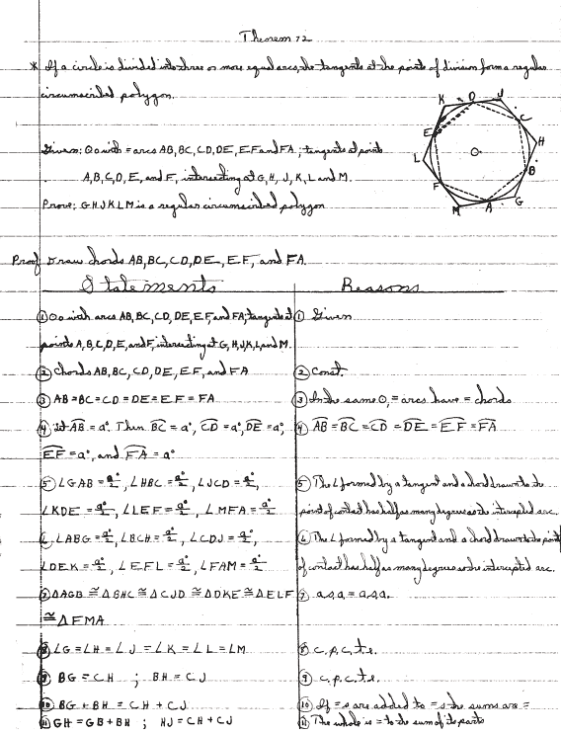 Theorem 72
* If a circle is divided into three or more equal arcs, the tangents at the points of division form a regular
circumscribed polygon.
Given: O o with = arcs AB, BC, CD, DE, EF and FA; tangents at points
A, B, C, D, E, and F, intersecting at G, H, J, K, L and M.
Prove: GHJKLM is a regular circumscribed polygon
K D J
C
E
H
O
L
B
F
G
M A
Proof Draw chords AB, BC, CD, DE, EF, and FA.
Statements Reasons
① O o with arcs AB, BC, CD, DE, EF, and FA; tangents at ① Given
points A, B, C, D, E, and F, intersecting at G, H, J, K, L, and M.
② Chords AB, BC, CD, DE, EF, and FA ② Const.
③ AB = BC = CD = DE = EF = FA ③ In the same O, = arcs have = chords
④ Let AB = a°. Then BC = a°, CD = a°, DE = a°, ④ AB = BC = CD = DE = EF = FA
EF = a°, and FA = a°
⑤ ∠GAB = a°/2, ∠HBC = a°/2, ∠JCD = a°/2, ⑤ The ∠ formed by a tangent and a chord drawn to the
∠KDE = a°/2, ∠LEF = a°/2, ∠MFA = a°/2 point of contact has half as many degrees as the intercepted arc.
∠ABG = a°/2, ∠BCH = a°/2, ∠CDJ = a°/2, ⑥ The ∠ formed by a tangent and a chord drawn to the point
∠DEK = a°/2, ∠EFL = a°/2, ∠FAM = a°/2 of contact has half as many degrees as the intercepted arc.
⑦ ΔAGB ≅ ΔBHC ≅ ΔCJD ≅ ΔDKE ≅ ΔELF ⑦ a.s.a. = a.s.a.
≅ ΔFMA
⑧ ∠G = ∠H = ∠J = ∠K = ∠L = ∠M ⑧ C.p.c.t.e.
⑨ BG = CH ; BH = CJ ⑨ C.p.c.t.e.
⑩ BG + BH = CH + CJ ⑩ If =s are added to =s the sums are =
⑪ GH = GB + BH ; HJ = CH + CJ ⑪ The whole is = to the sum of its parts